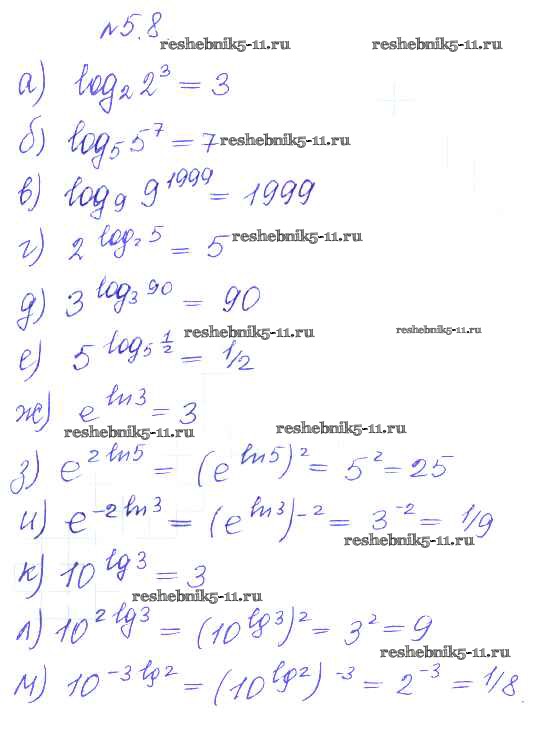 №5.8.
reshebnik5-11.ru reshebnik5-11.ru
а) log₂ 2³ = 3
б) log₅ 5⁷ = 7 reshebnik5-11.ru
в) log₉ 9¹⁹⁹⁹ = 1999
г) 2^(log₂ 5) = 5 reshebnik5-11.ru
д) 3^(log₃ 90) = 90
reshebnik5-11.ru reshebnik5-11.ru
е) 5^(log₅ ½) = 1/2
ж) e^(ln3) = 3
reshebnik5-11.ru reshebnik5-11.ru
з) e^(2ln5) = (e^(ln5))² = 5² = 25
и) e^(-2ln3) = (e^(ln3))⁻² = 3⁻² = 1/9
reshebnik5-11.ru
к) 10^(lg3) = 3
reshebnik5-11.ru
л) 10^(2lg3) = (10^(lg3))² = 3² = 9
reshebnik5-11.ru
м) 10^(-3lg2) = (10^(lg2))⁻³ = 2⁻³ = 1/8.